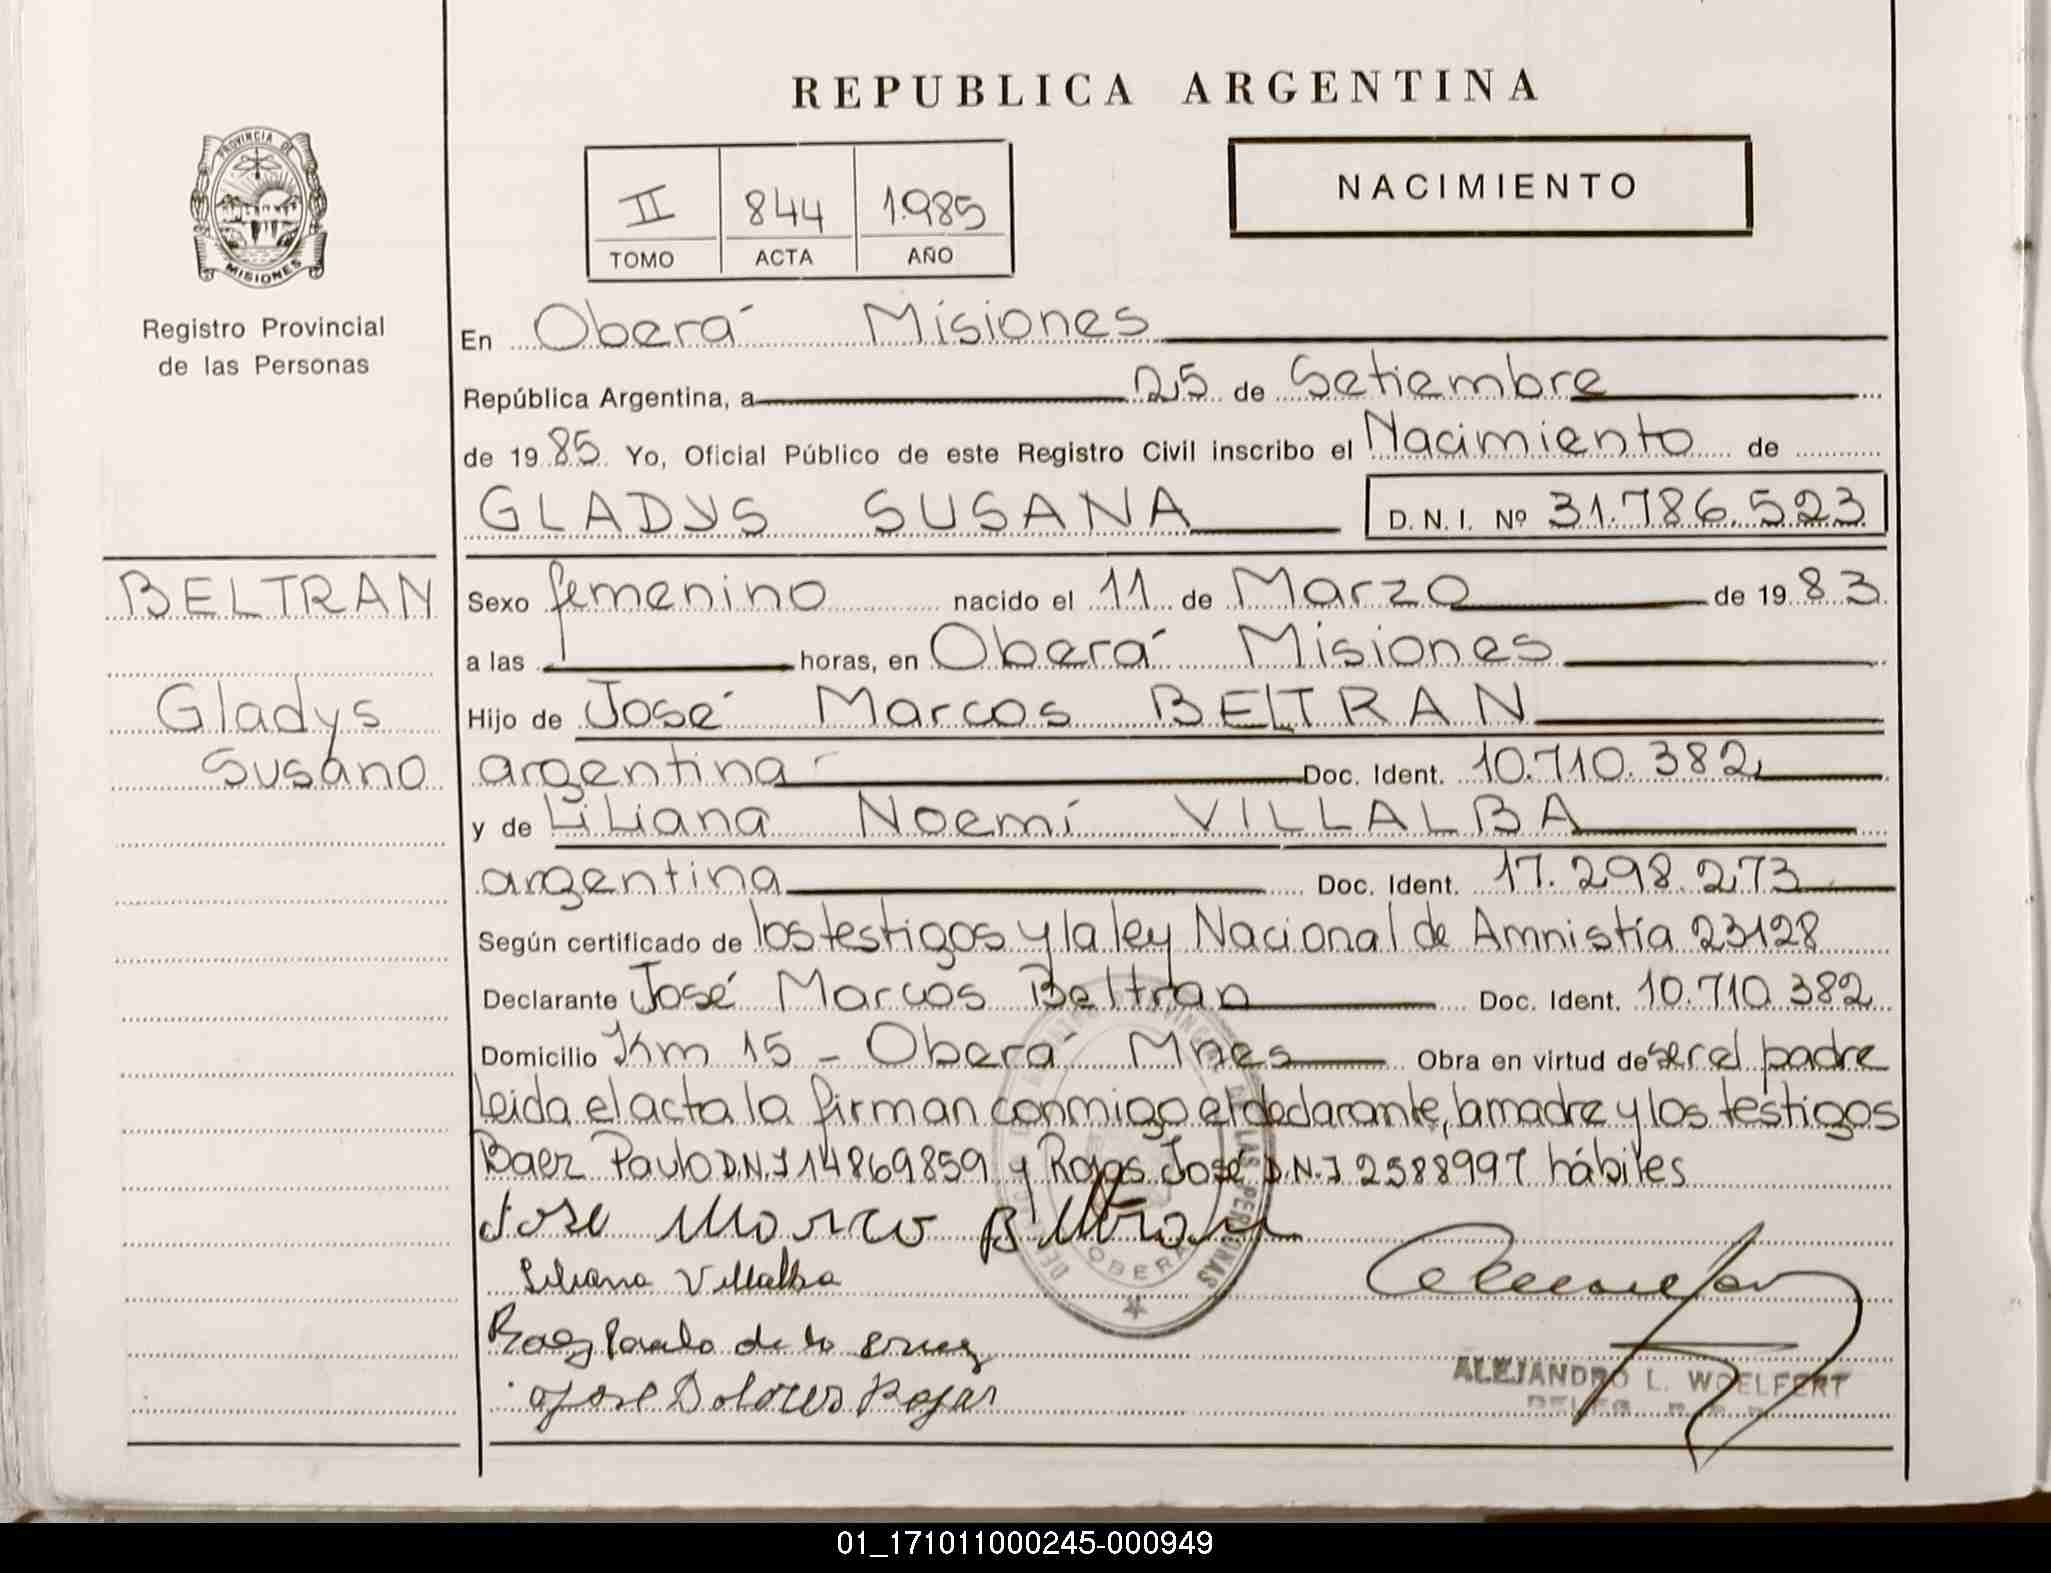 REPUBLICA ARGENTINA
PROVINCIA DE
MISIONES
Registro Provincial
de las Personas
II 844 1.985
TOMO ACTA AÑO
NACIMIENTO
En Oberá Misiones
República Argentina, a 25 de Setiembre
de 1985 Yo, Oficial Público de este Registro Civil inscribo el Nacimiento de
GLADYS SUSANA D. N. I. Nº 31.786.523
BELTRAN
Gladys
Susana
Sexo femenino nacido el 11 de Marzo de 1983
a las horas, en Oberá Misiones
Hijo de José Marcos BELTRAN
argentina Doc. Ident. 10.710.382
y de Liliana Noemí VILLALBA
argentina Doc. Ident. 17.298.273
Según certificado de los testigos y la ley Nacional de Amnistía 23128
Declarante José Marcos Beltran Doc. Ident. 10.710.382
Domicilio Km 15 - Oberá Mnes Obra en virtud de ser el padre
Leida el acta la firman conmigo el declarante, la madre y los testigos
Baez Paulo D.N.I 14869859 y Rojas José D.N.I 2588997 hábiles
Jose Marco Beltran
Liliana Villalba
Baez Paulo de la Cruz
Jose Dolores Rojas
DE LAS PERSONAS
OBERA
ALEJANDRO L. WOELFERT
01_171011000245-000949